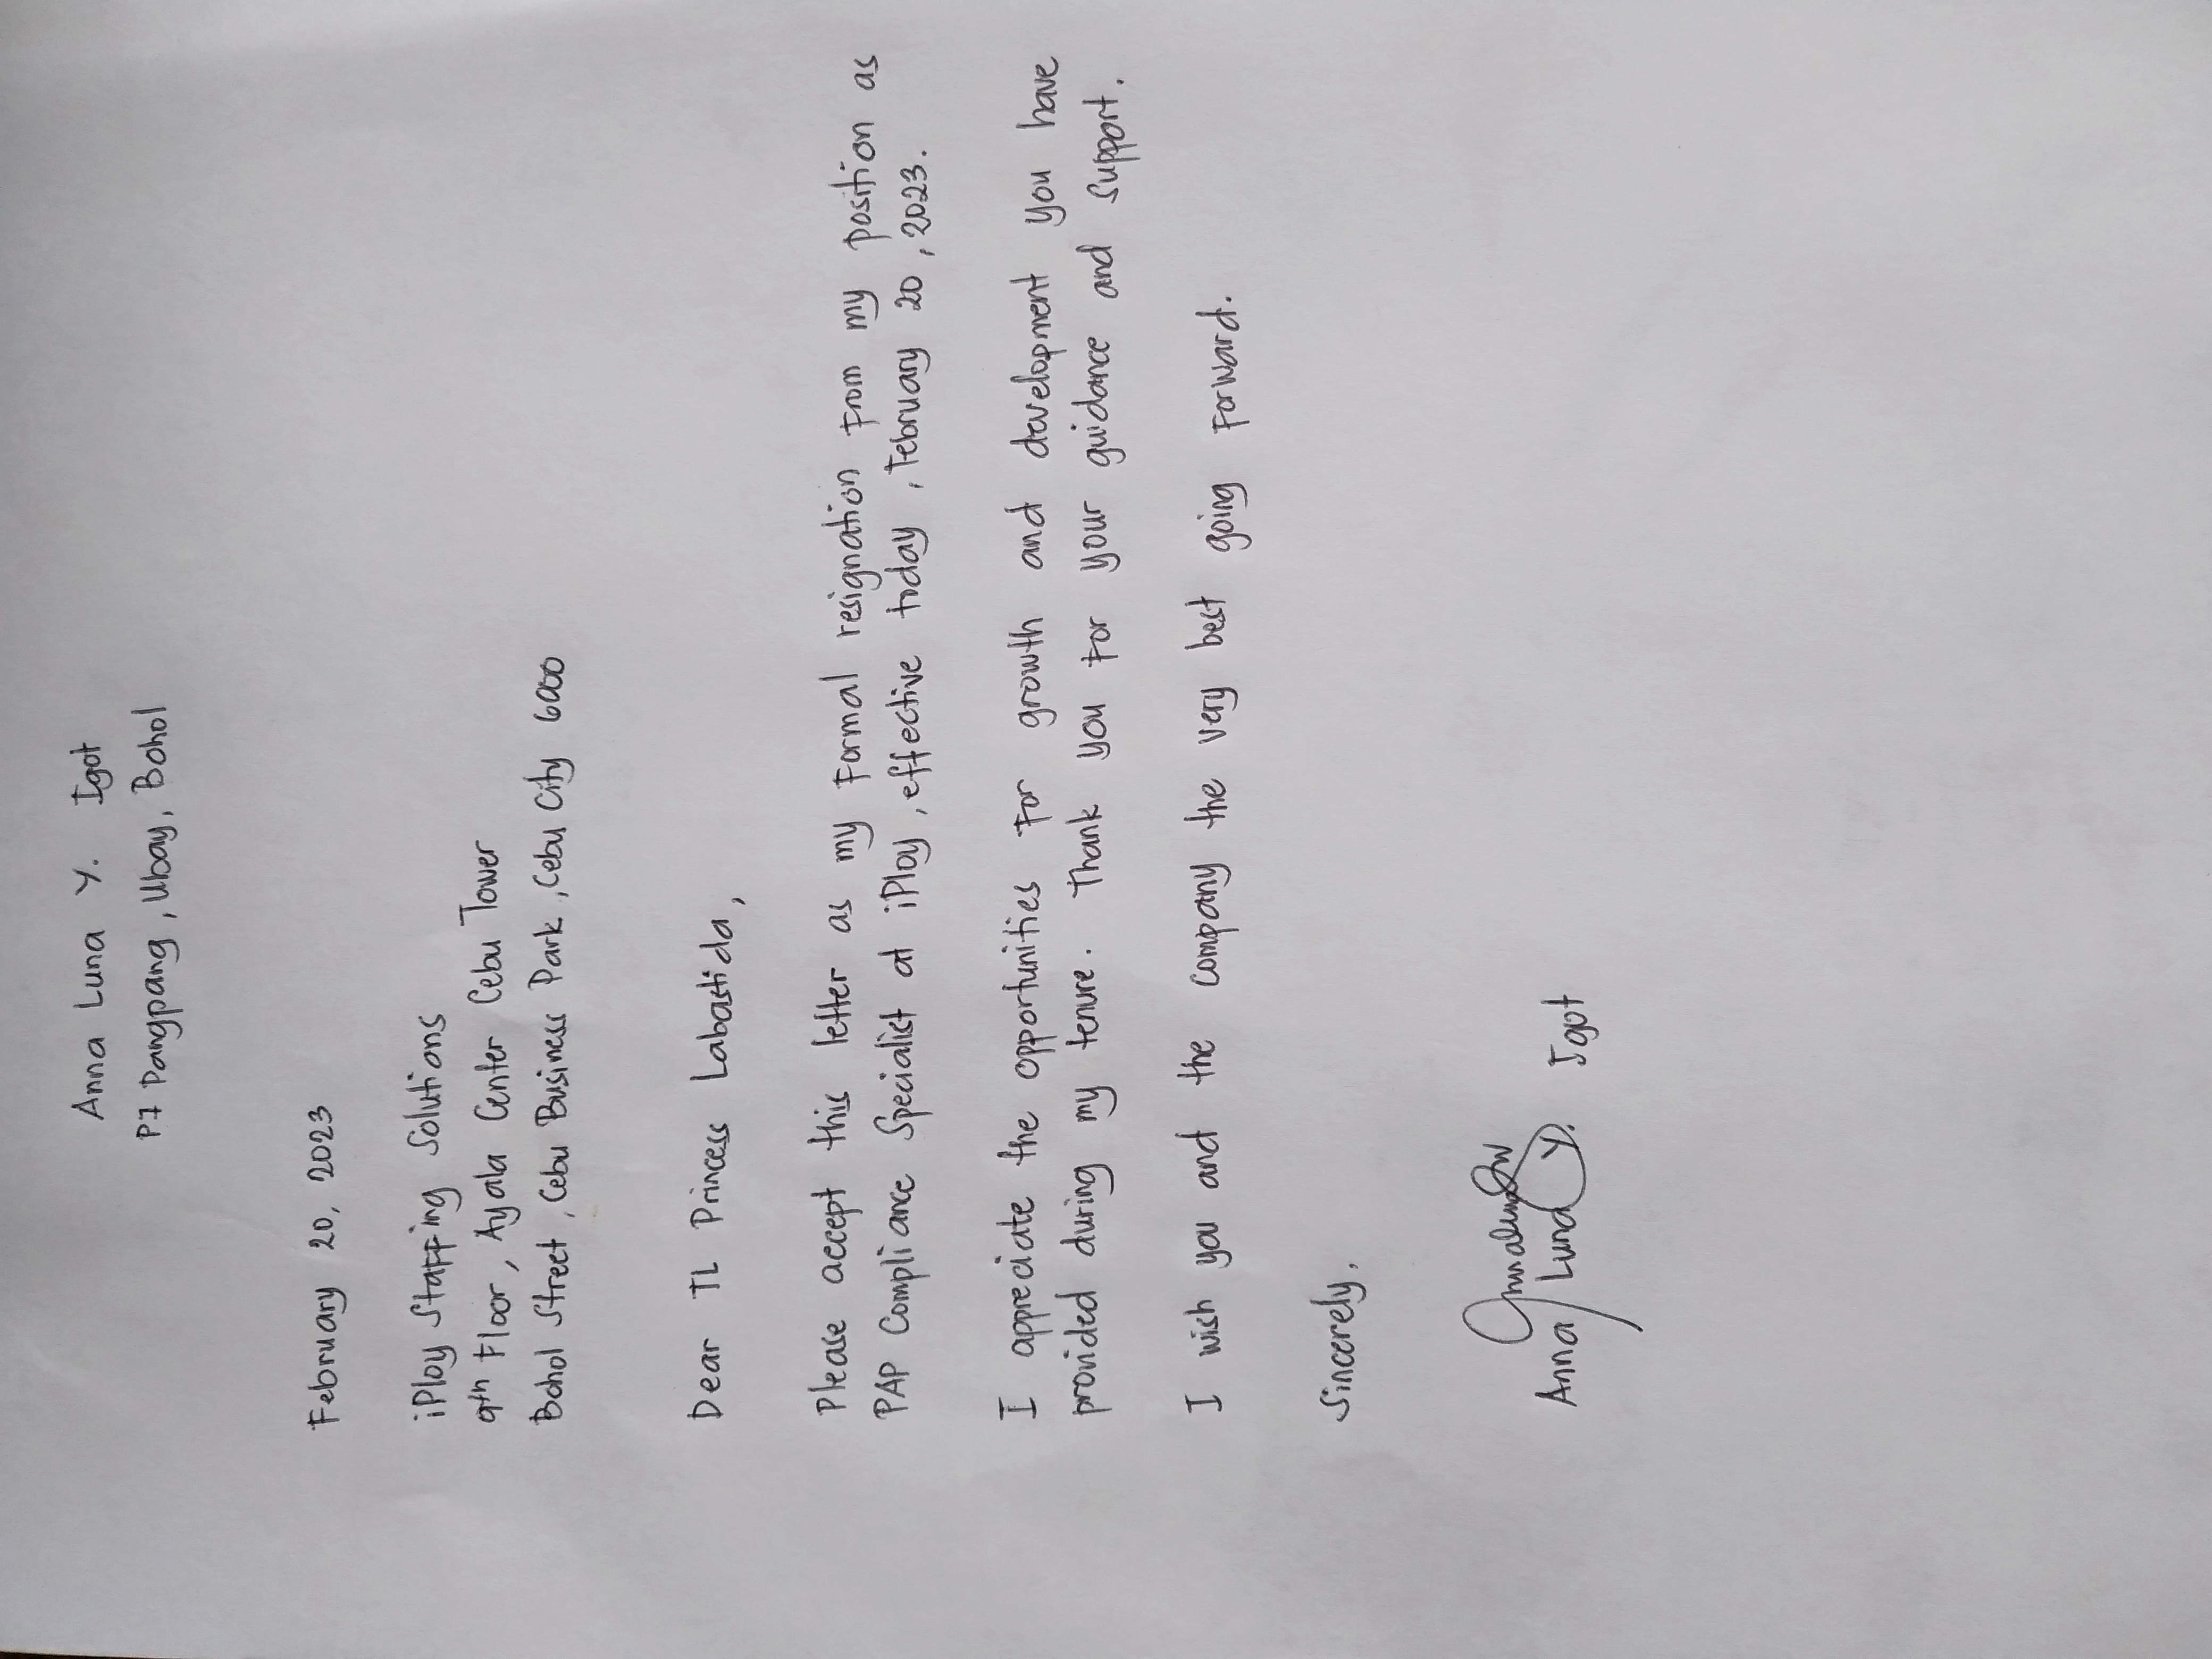 Anna Luna Y. Igot
P7 Pangpang, Ubay, Bohol
February 20, 2023
iPloy Staffing Solutions
9th Floor, Ayala Center Cebu Tower
Bohol Street, Cebu Business Park, Cebu City 6000
Dear TL Princess Labastida,
Please accept this letter as my formal resignation from my position as
PAP Compliance Specialist at iPloy, effective today, February 20, 2023.
I appreciate the opportunities for growth and development you have
provided during my tenure. Thank you for your guidance and support.
I wish you and the company the very best going forward.
Sincerely,
Anna Luna Y. Igot